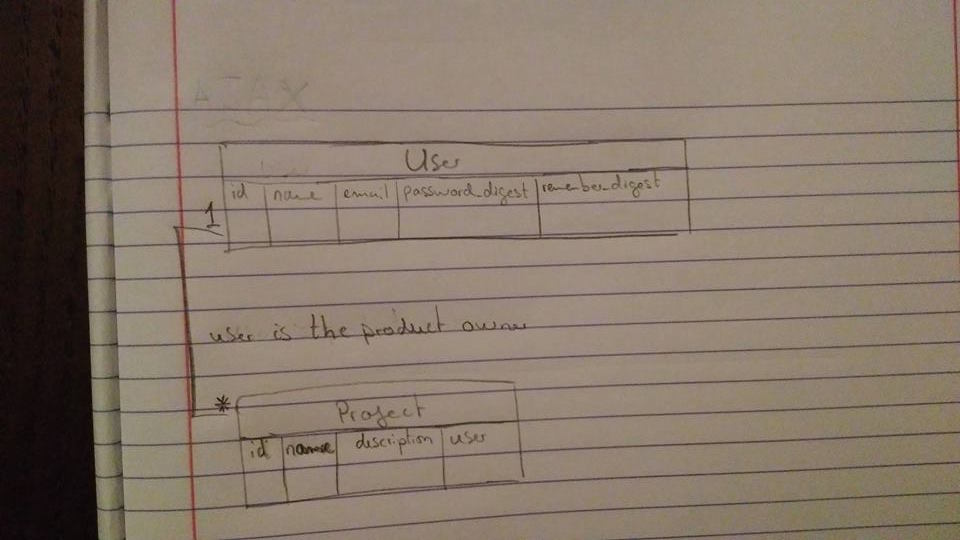 AJAX
User
id name email password_digest remember_digest
1
user is the product owner
*
Project
id name discription user